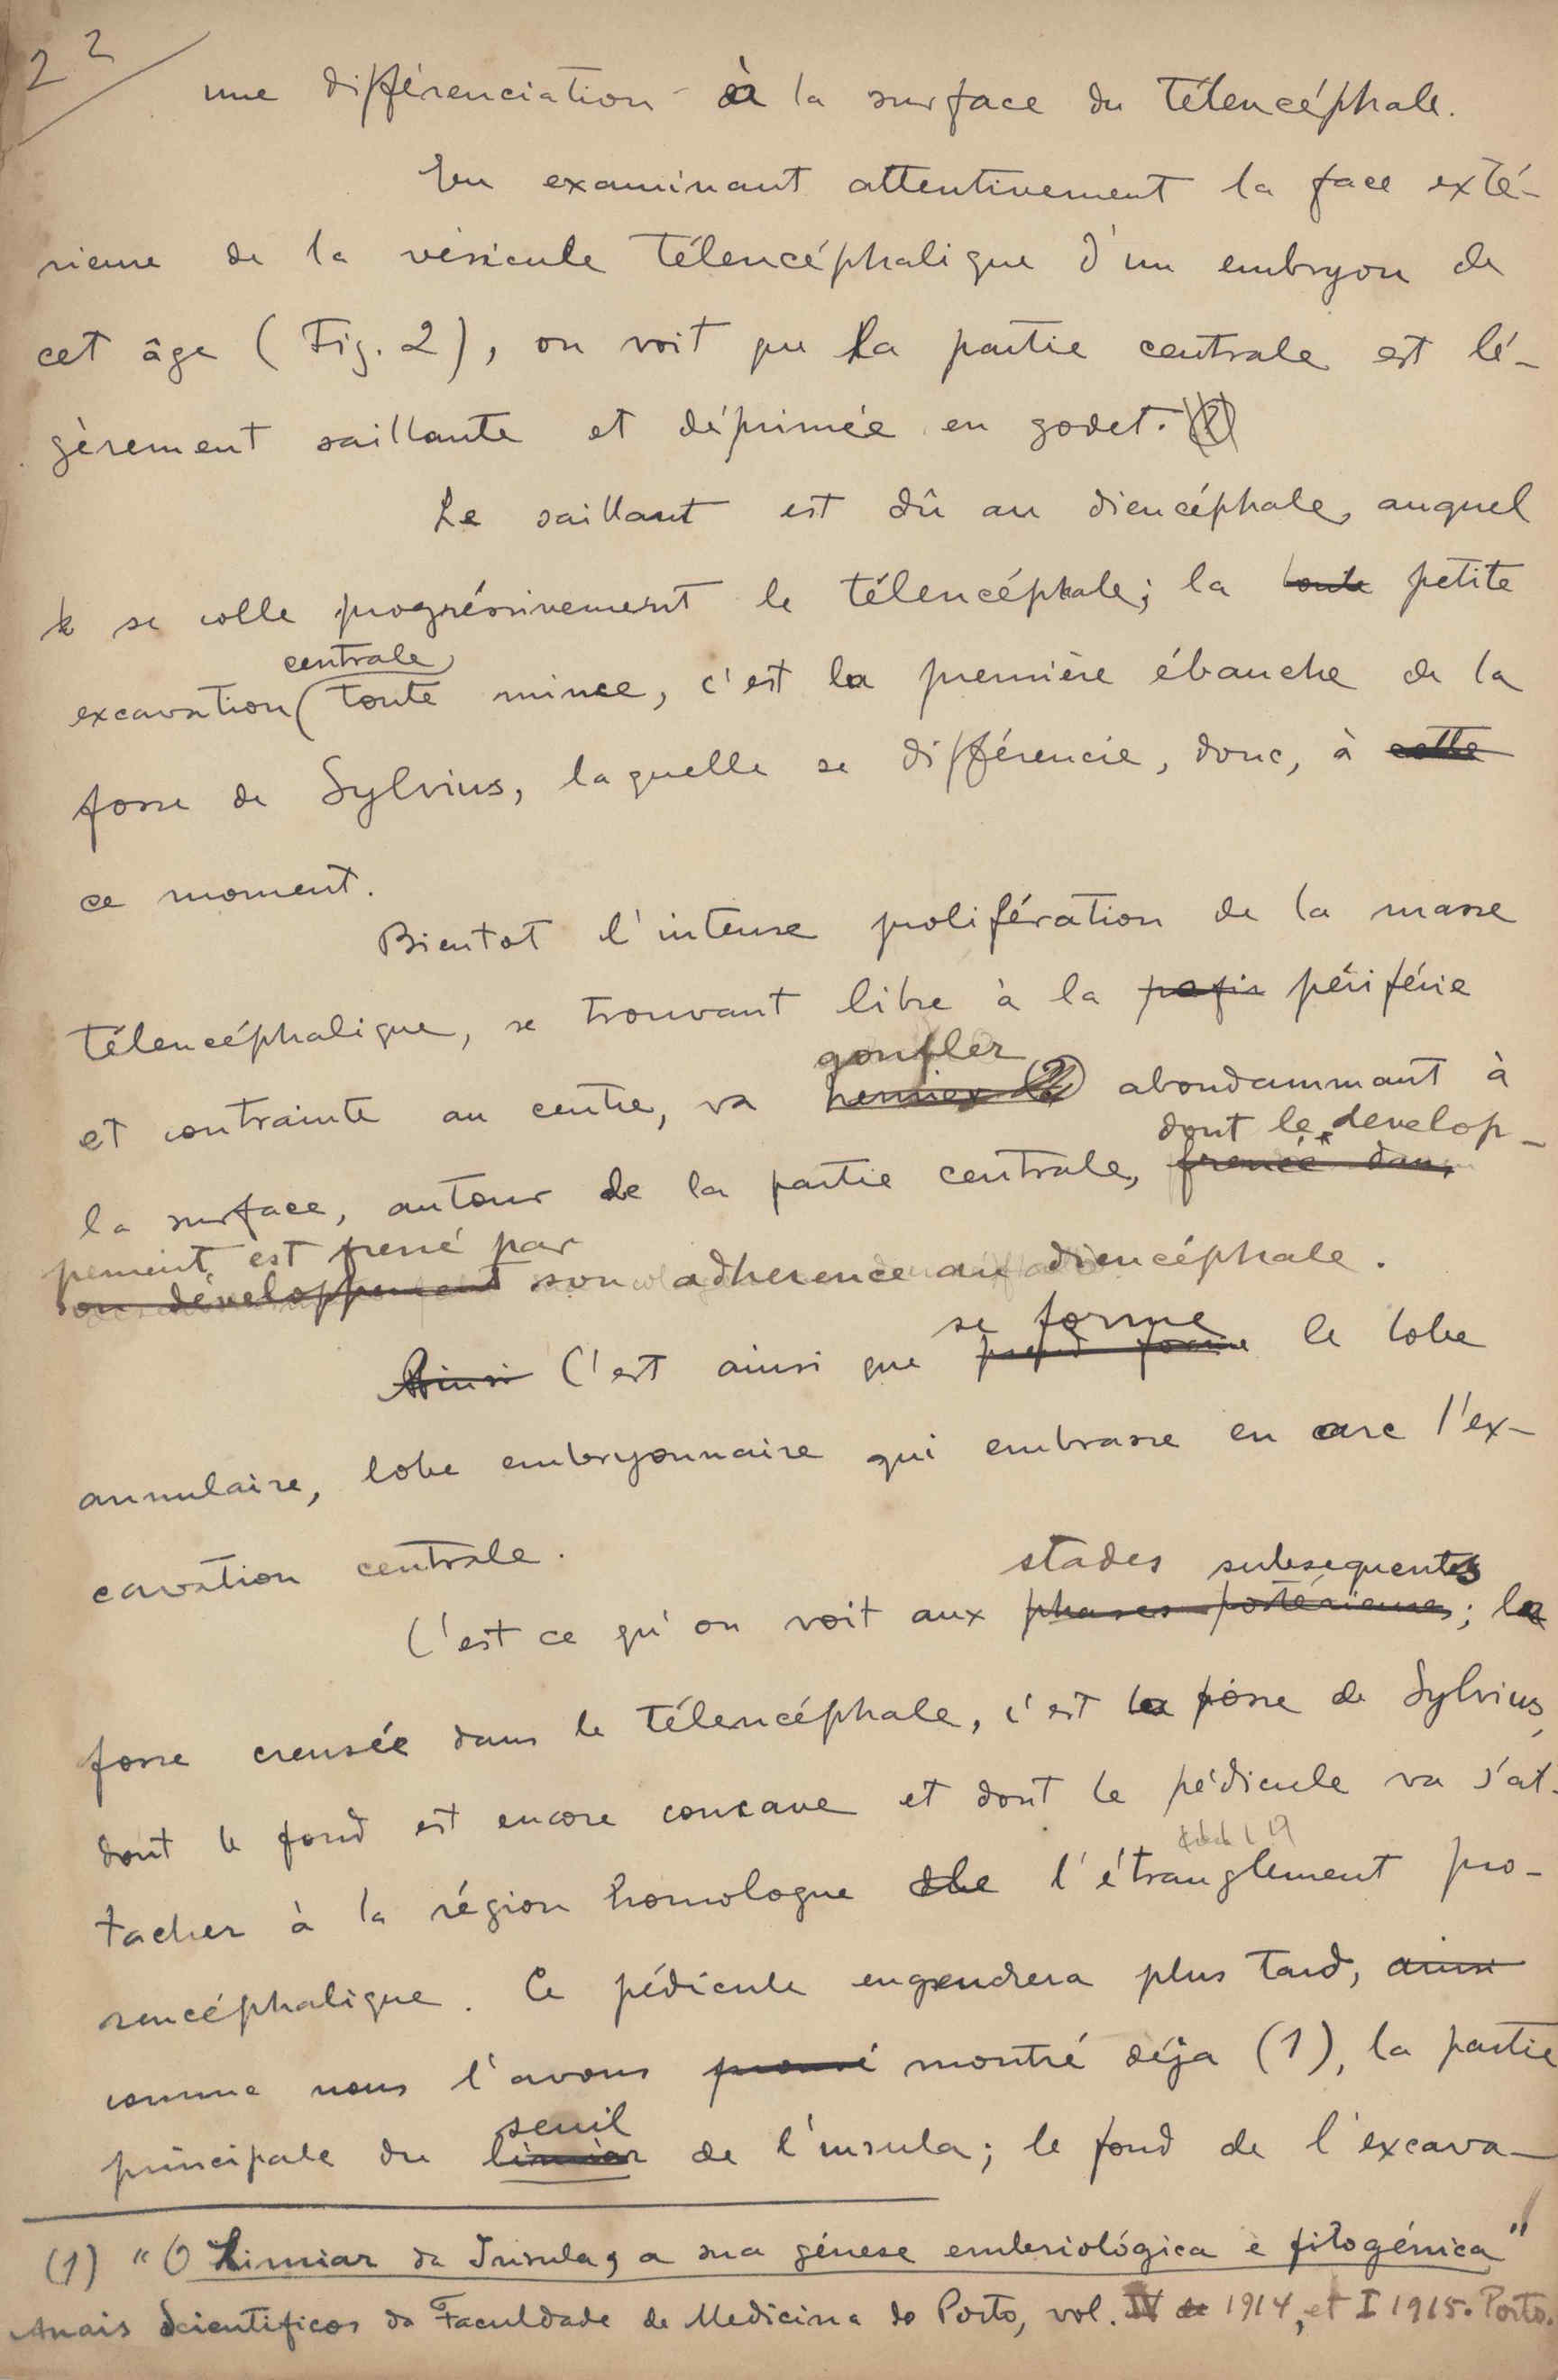 22
une différenciation à la surface du télencéphale.
En examinant attentivement la face exté-
rieure de la vésicule télencéphalique d'un embryon de
cet âge (Fig. 2), on voit que la partie centrale est lé-
gèrement saillante et déprimée en godet.
Le saillant est dû au diencéphale, auquel
se colle progréssivement le télencéphale; la toute petite
centrale
excavation (toute mince, c'est la première ébauche de la
fosse de Sylvius, laquelle se différencie, donc, à cette
ce moment.
Bientot l'intense prolifération de la masse
télencéphalique, se trouvant libre à la pefir périférie
gonfler
et contrainte au centre, va hernier abondammant à
dont le develop-
la surface, autour de la partie centrale, frenée dans
pement est frené par
son développement son adherence au diencéphale.
se forme
Ainsi C'est ainsi que prend forme le lobe
annulaire, lobe embryonnaire qui embrasse en arc l'ex-
cavation centrale.
stades subsequents
C'est ce qu'on voit aux phases postérieures; la
fosse creusée dans le télencéphale, c'est la fosse de Sylvius,
dont le fond est encore concave et dont le pédicule va s'at-
tacher à la région homologue de l'étranglement pro-
sencéphalique. Ce pédicule engendrera plus tard, ainsi
comme nous l'avons prouvé montré déja (1), la partie
seuil
principale du limiar de l'insula; le fond de l'excava-
(1) "O Limiar da Insula, a sua génese embriológica e filogénica"
Anais Scientificos da Faculdade de Medicina do Porto, vol. IV de 1914, et I 1915. Porto.